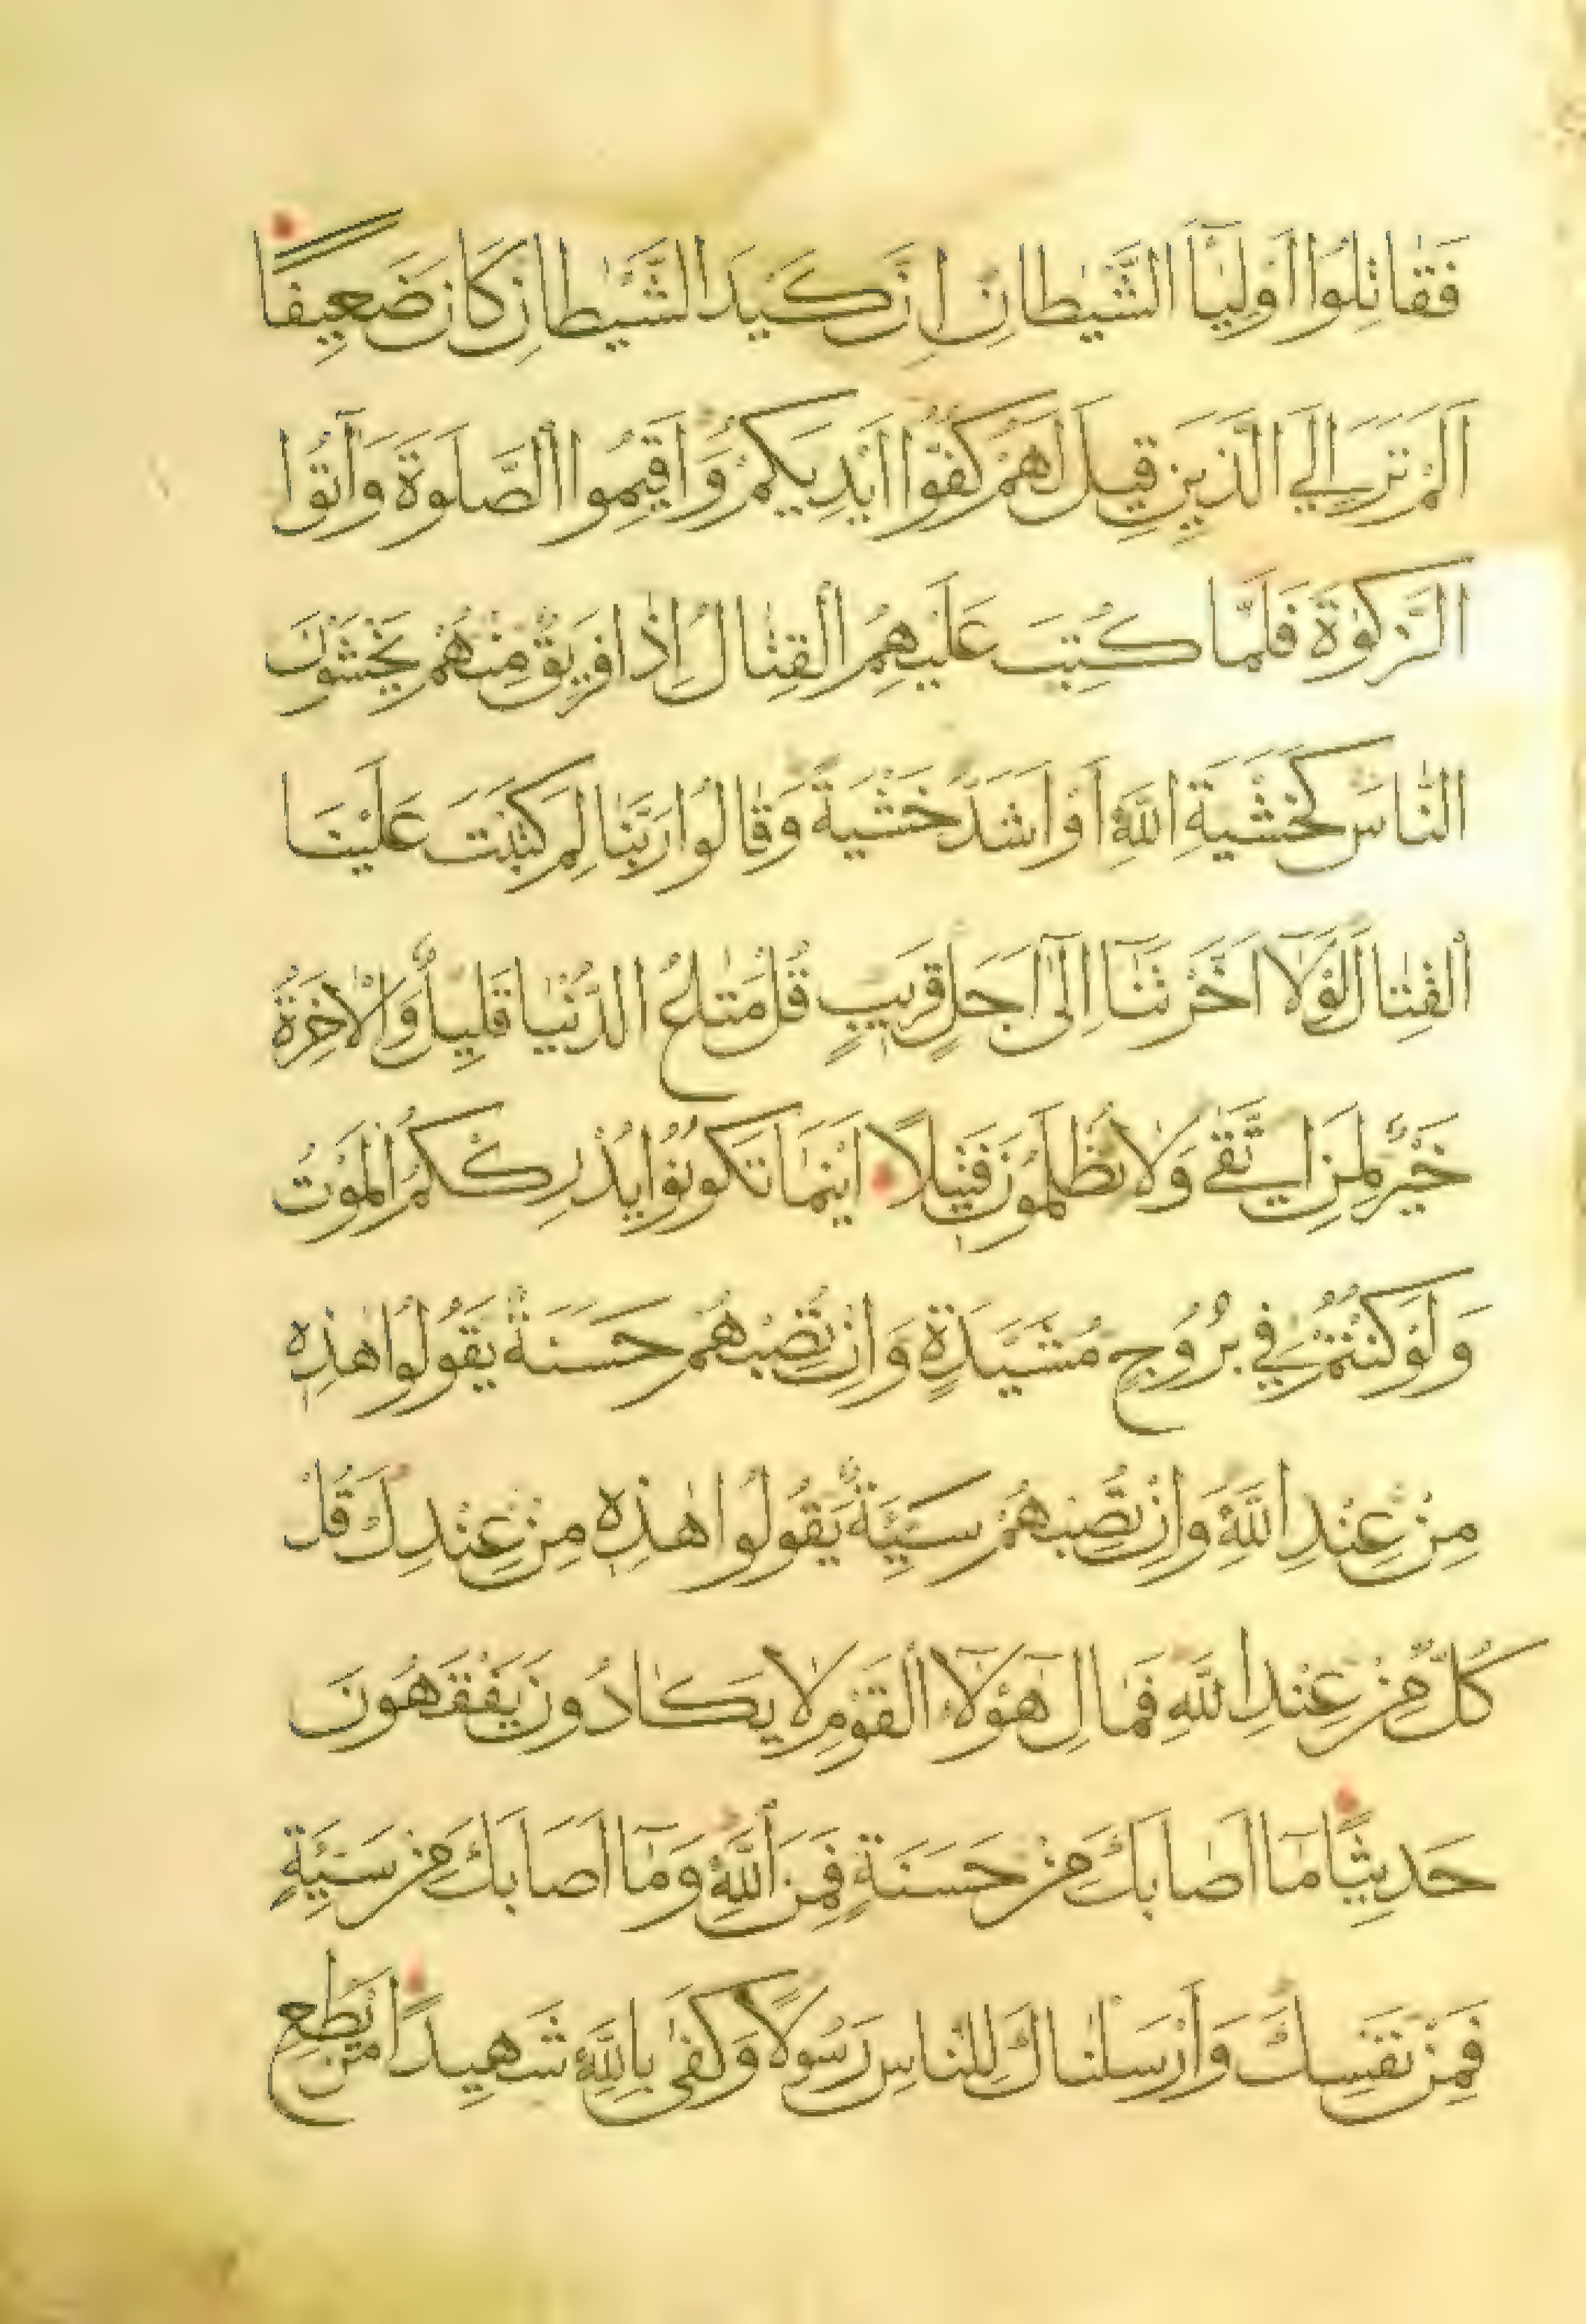 فَقَاتِلُوا اَوْلِيَٓاءَ الشَّيْطَانِ اِنَّ كَيْدَ الشَّيْطَانِ كَانَ ضَعِيفًا
اَلَمْ تَرَ اِلَى الَّذِينَ قِيلَ لَهُمْ كُفُّوا اَيْدِيَكُمْ وَاَقِيمُوا الصَّلٰوةَ وَاٰتُوا
الزَّكٰوةَ فَلَمَّا كُتِبَ عَلَيْهِمُ الْقِتَالُ اِذَا فَرِيقٌ مِنْهُمْ يَخْشَوْنَ
النَّاسَ كَخَشْيَةِ اللّٰهِ اَوْ اَشَدَّ خَشْيَةً وَقَالُوا رَبَّنَا لِمَ كَتَبْتَ عَلَيْنَا
الْقِتَالَ لَوْلَٓا اَخَّرْتَنَٓا اِلٰٓى اَجَلٍ قَرِيبٍ قُلْ مَتَاعُ الدُّنْيَا قَلِيلٌ وَالْاٰخِرَةُ
خَيْرٌ لِمَنِ اتَّقٰى وَلَا تُظْلَمُونَ فَتِيلًا اَيْنَمَا تَكُونُوا يُدْرِكْكُمُ الْمَوْتُ
وَلَوْ كُنْتُمْ فِي بُرُوجٍ مُشَيَّدَةٍ وَاِنْ تُصِبْهُمْ حَسَنَةٌ يَقُولُوا هٰذِهِ
مِنْ عِنْدِ اللّٰهِ وَاِنْ تُصِبْهُمْ سَيِّئَةٌ يَقُولُوا هٰذِهِ مِنْ عِنْدِكَ قُلْ
كُلٌّ مِنْ عِنْدِ اللّٰهِ فَمَالِ هٰٓؤُلَٓاءِ الْقَوْمِ لَا يَكَادُونَ يَفْقَهُونَ
حَدِيثًا مَٓا اَصَابَكَ مِنْ حَسَنَةٍ فَمِنَ اللّٰهِ وَمَٓا اَصَابَكَ مِنْ سَيِّئَةٍ
فَمِنْ نَفْسِكَ وَاَرْسَلْنَاكَ لِلنَّاسِ رَسُولًا وَكَفٰى بِاللّٰهِ شَهِيدًا مَنْ يُطِعِ